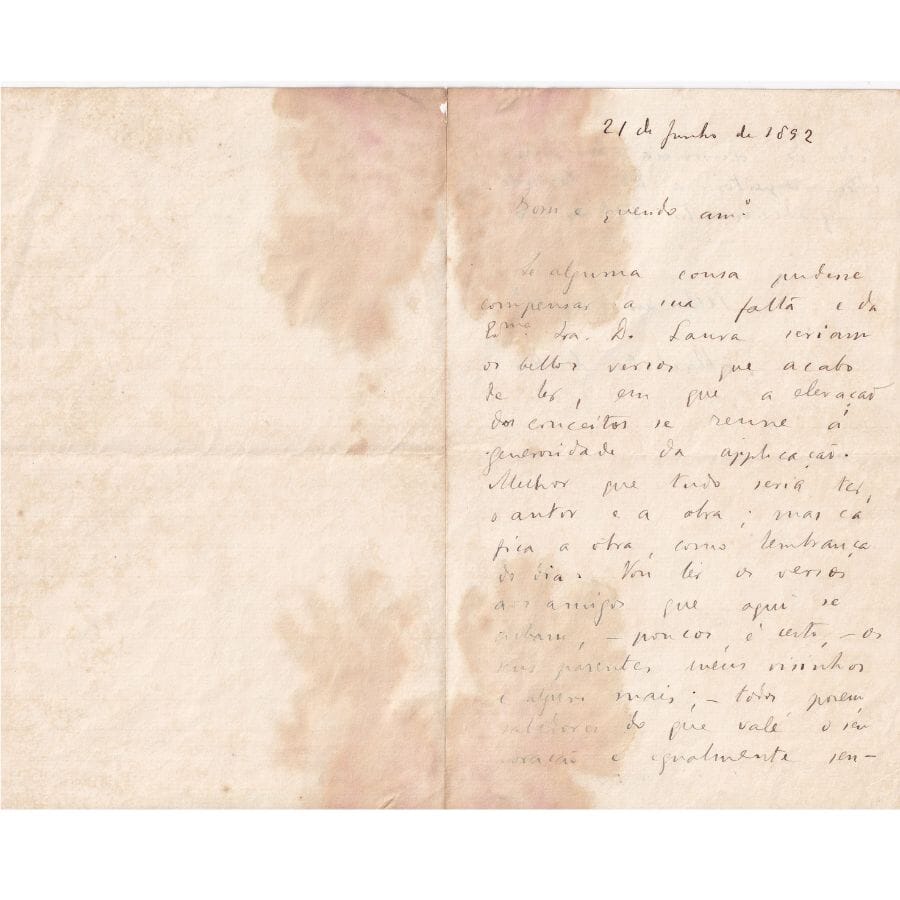 21 de Junho de 1892
Bom e querido amº
Se alguma cousa pudesse
compensar a sua falta e da
Exma. Sra. D. Laura seriam
os bellos versos que acabo
de ler, em que a elevação
dos conceitos se reune á
generosidade da applicação.
Melhor que tudo seria ter,
o autor e a obra; mas cá
fica a obra, como lembrança
do dia. Vou ler os versos
aos amigos que aqui se
acham, – poucos, é certo, – os
seus parentes meus visinhos
e alguns mais; – todos porém
sabedores do que vale o seu
coração e egualmente sen-